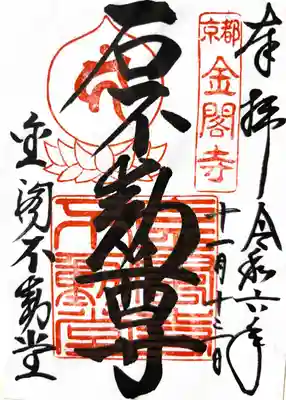 奉拝
令和六年
十一月十三日
京都
金閣寺
石不動尊
金閣不動堂